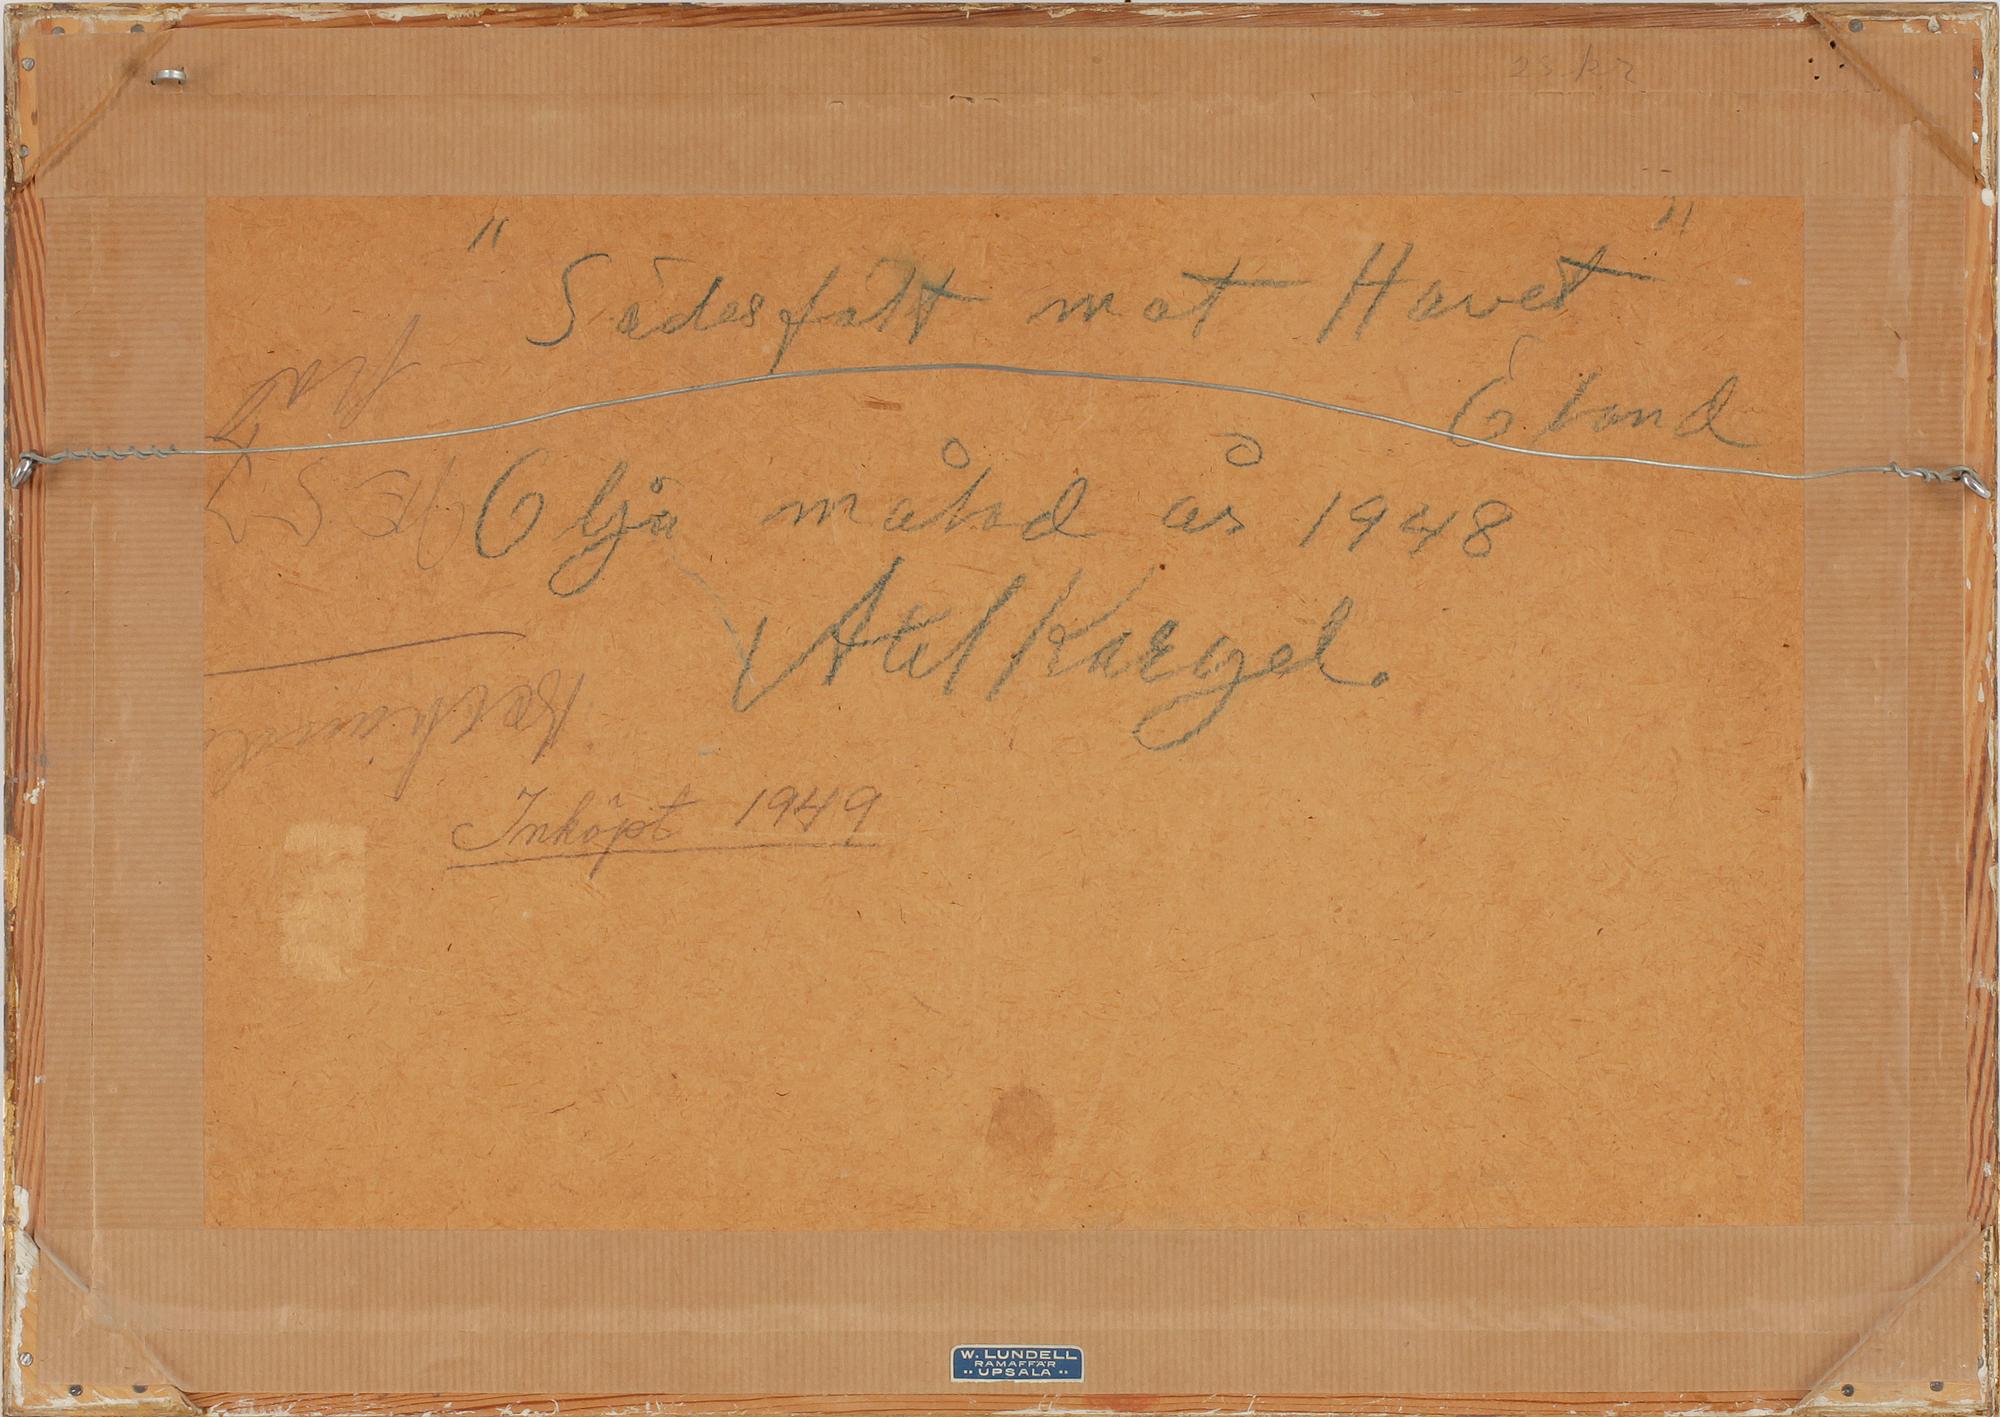 25 kr
"Sädesfält mot Havet"
Öland
Olja målad år 1948
Axel Kargel.
Inköpt 1949
W. LUNDELL
RAMAFFÄR
UPSALA